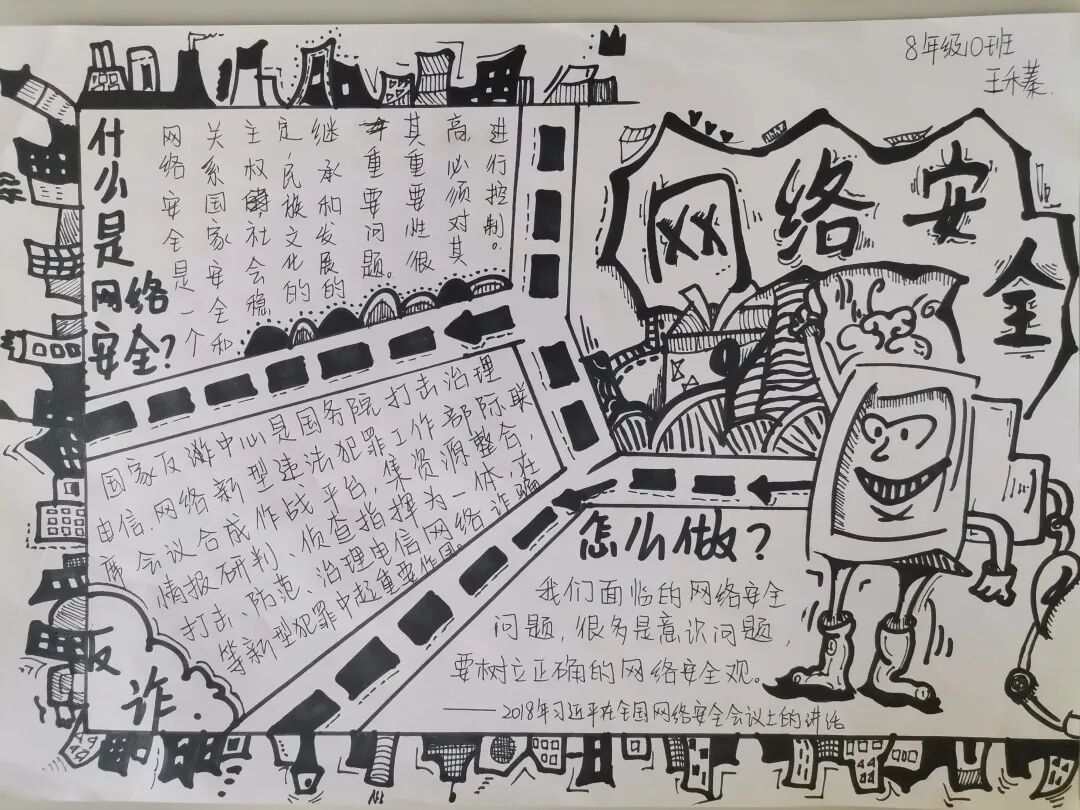 8年级10班
王禾蓁.
网络安全
什么是网络安全?
网络安全是一个
关系国家安全和
主权 社会稳
定,民族文化的
继承和发展的
重要问题。
其重要性很
高,必须对其
进行控制。
国家反诈中心是国务院打击治理
电信网络新型违法犯罪工作部际联
席会议合成作战平台,集资源整合,
情报研判、侦查指挥为一体,在
打击、防范、治理电信网络诈骗
等新型犯罪中起重要作用
反诈.
怎么做?
我们面临的网络安全
问题,很多是意识问题,
要树立正确的网络安全观。
——2018年习近平在全国网络安全会议上的讲话